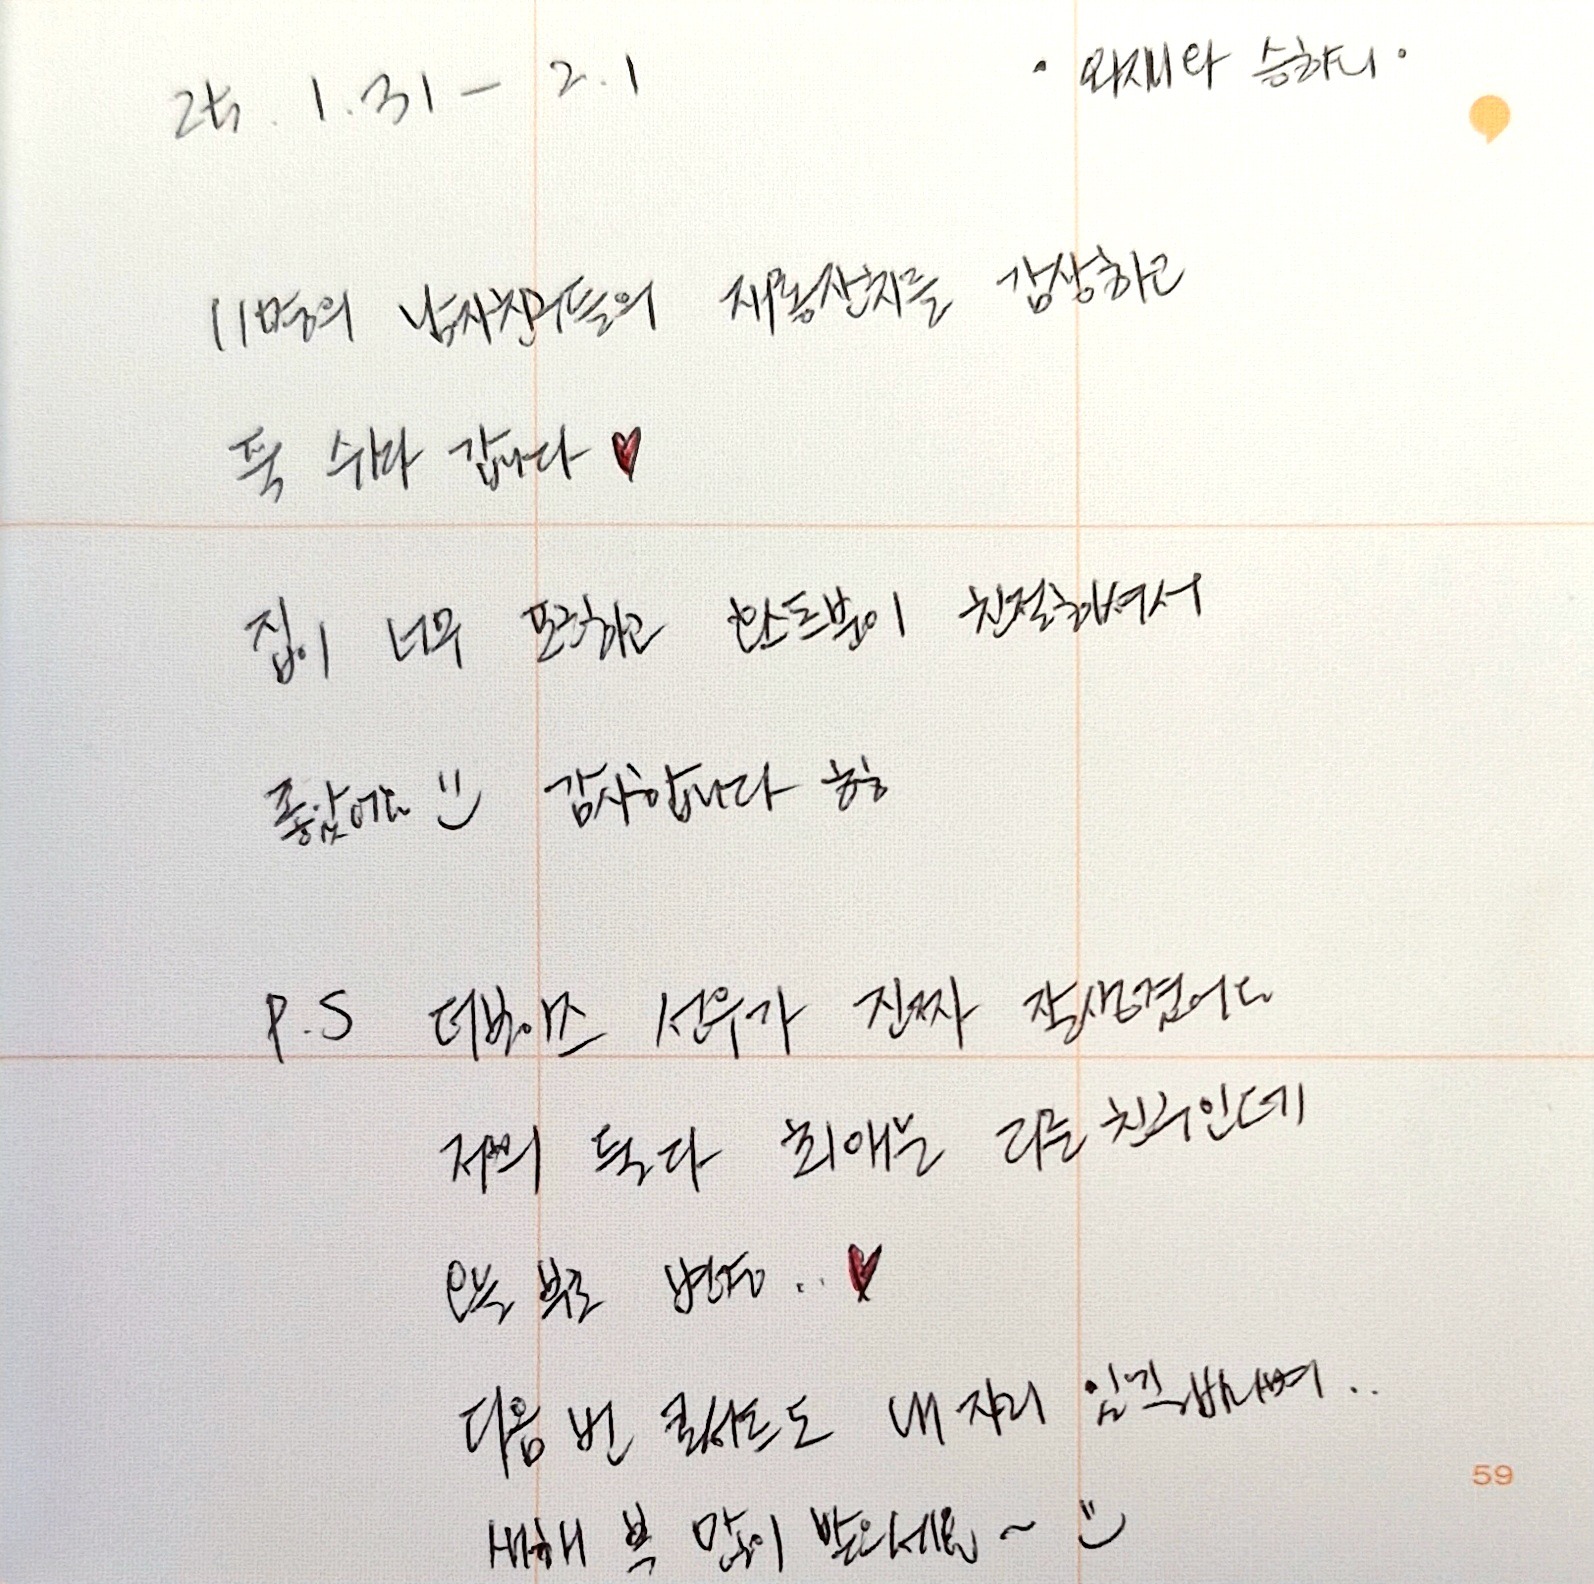 25. 1. 31 - 2. 1
· 와재와 승하니 ·
11명의 남자친구들의 재롱잔치를 감상하고
푹 쉬다 갑니다 ♥
집이 너무 포근하고 호스트분이 친절하셔서
좋았어요 :) 감사합니다 ㅎㅎ
P.S 더보이즈 선우가 진짜 잘생겼어요
저희 둘 다 최애는 다른 친구인데
오늘부로 변동.. ♥
다음 번 콘서트도 내 자리 있길 바라며..
새해 복 많이 받으세요~ :)
59